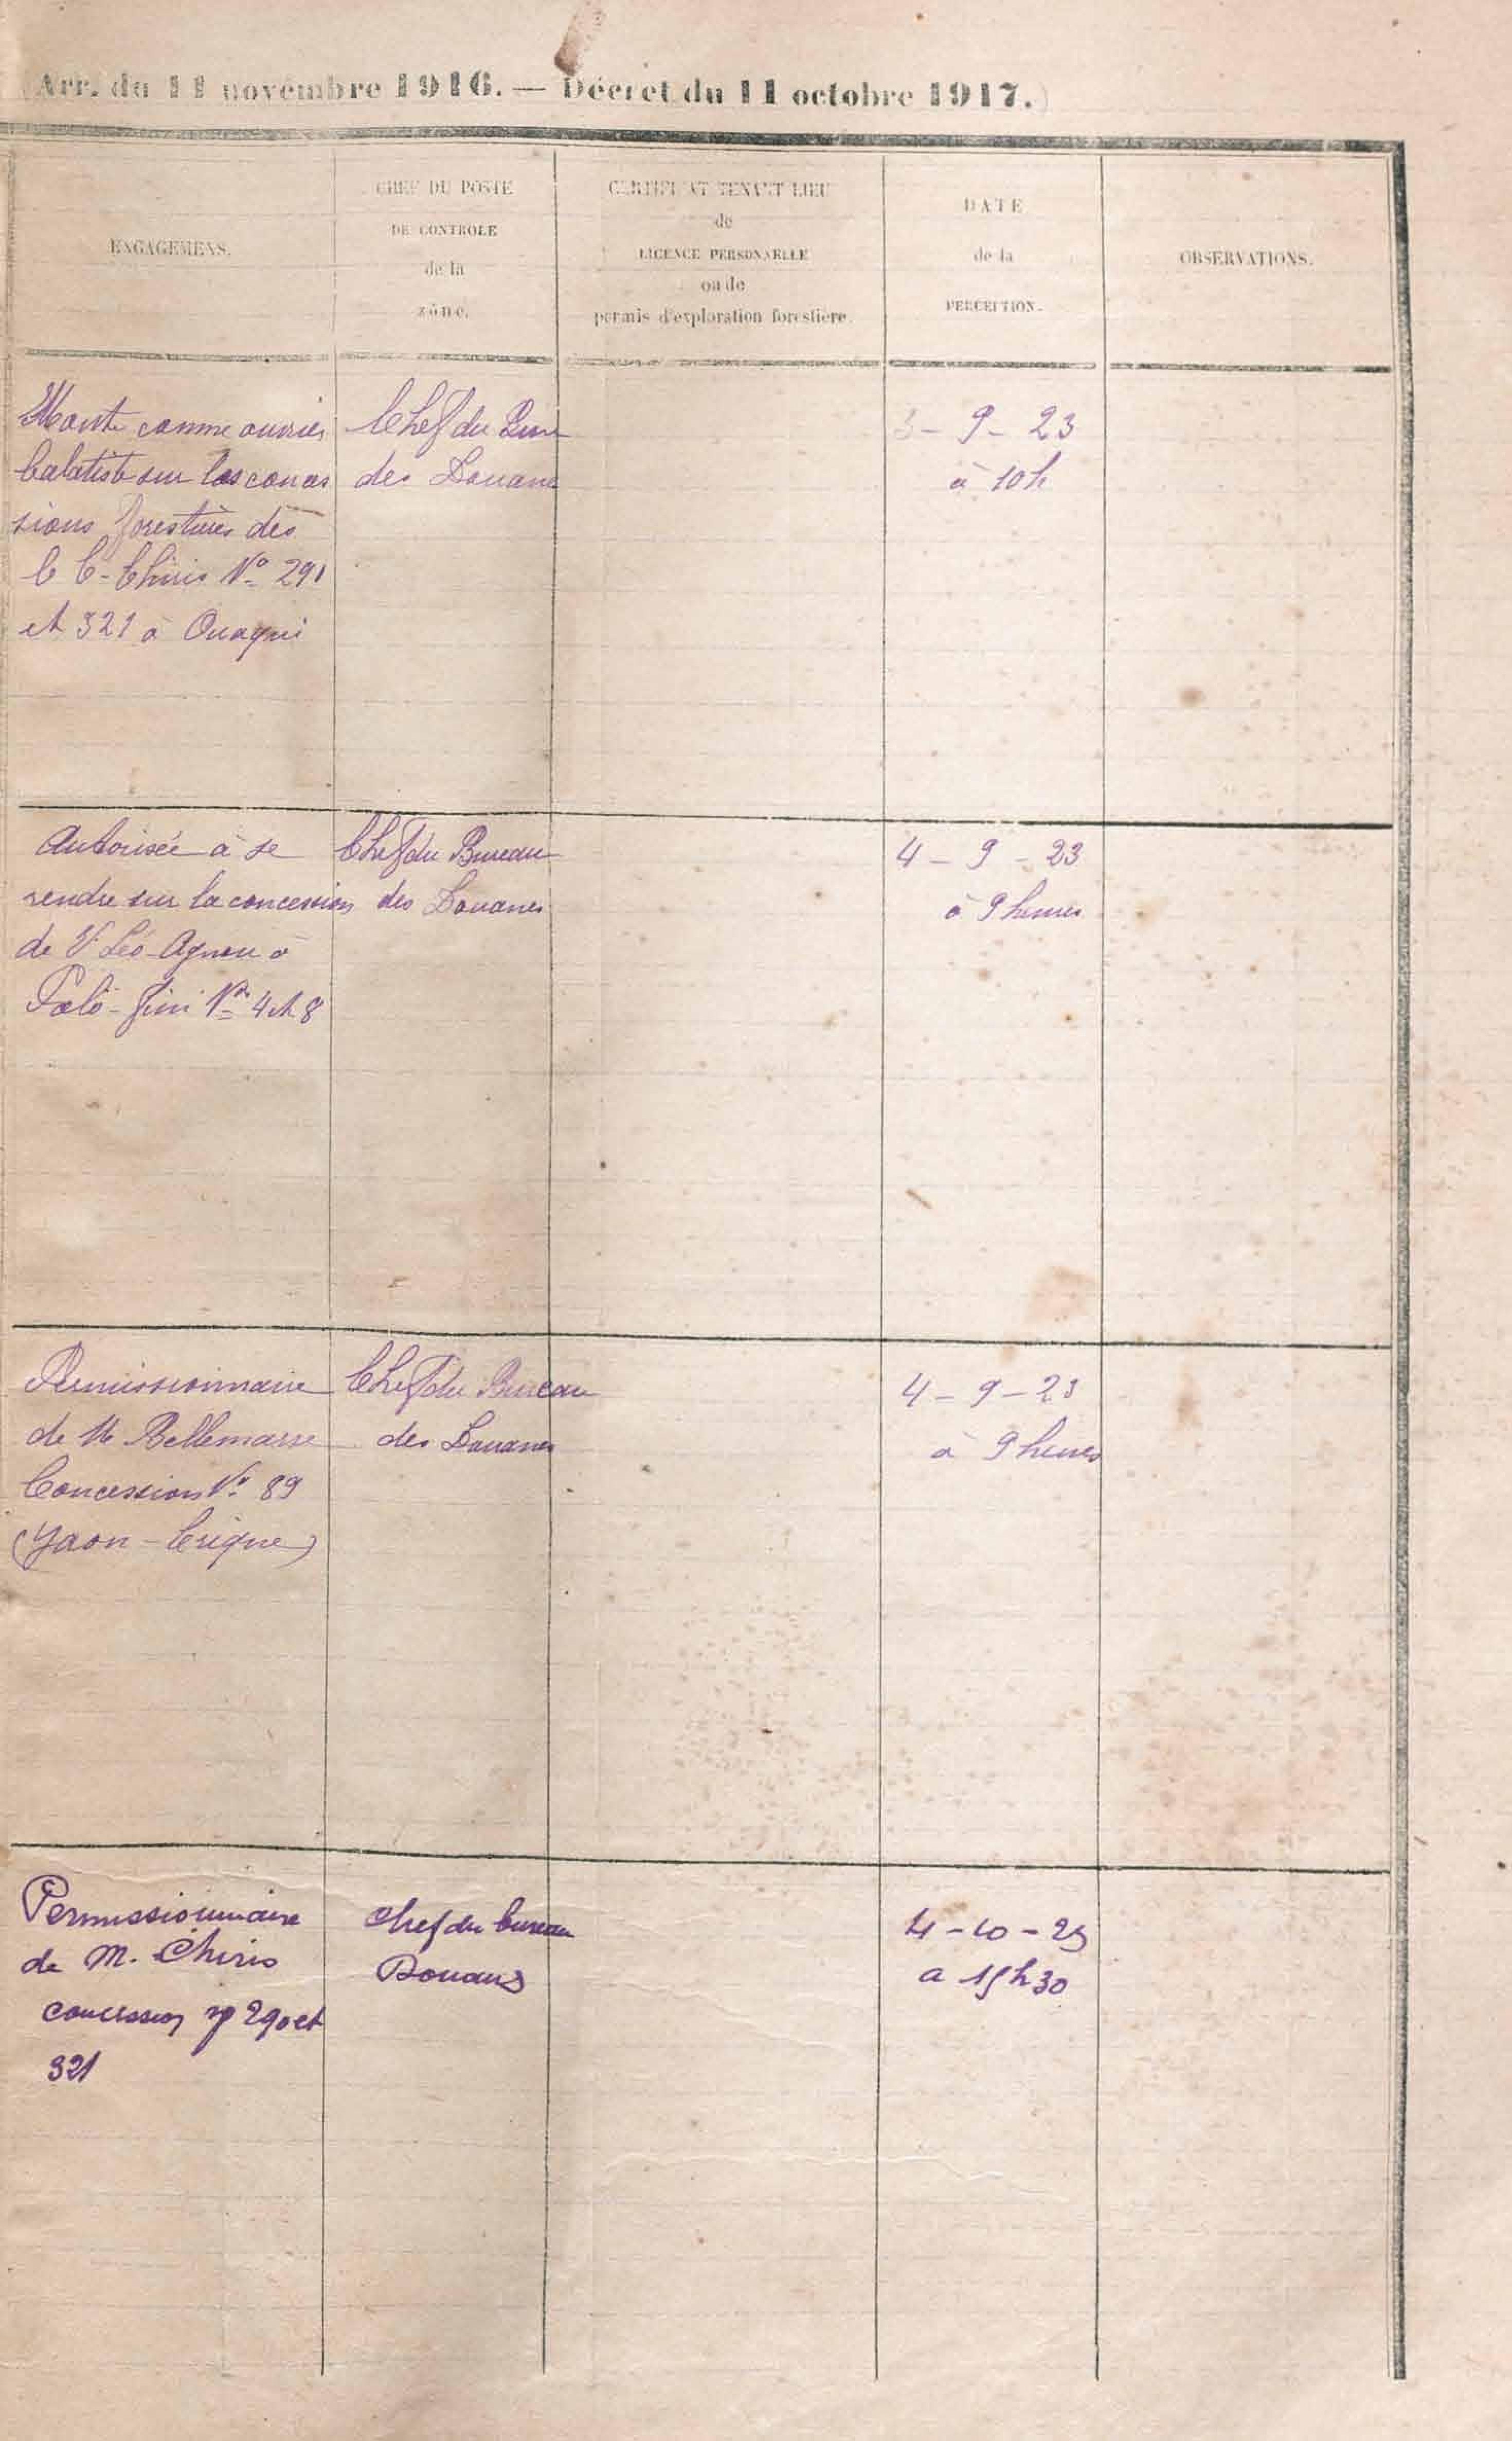 Arr. du 11 novembre 1916. — Décret du 11 octobre 1917.)
ENGAGEMENS.
CHEF DU POSTE
DE CONTROLE
de la
zône.
CERTIFICAT TENANT LIEU
de
LICENCE PERSONNELLE
ou de
permis d'exploration forestière.
DATE
de la
PERCEPTION.
OBSERVATIONS.
Monte comme ouvrier
balatiste sur les conces
sions forestières des
C C - Chiris No 291
et 321 à Ouaqui
Chef du Bure
des Douane
3 - 9 - 23
à 10 h
Autorisée à se
rendre sur la concession
de V. Léo-Agneu à
Palo - fini Nos 4 et 8
Chef du Bureau
des Douanes
4 - 9 - 23
à 9 heures
Permissionnaire
de M Bellemarre
Concession No 89
(Yaon - Crique)
Chef du Bureau
des Douanes
4 - 9 - 23
à 9 heures
Permissionnaire
de M. Chiris
concession no 290 et
321
Chef du bureau
Douanes
4 - 10 - 23
a 15 h 30